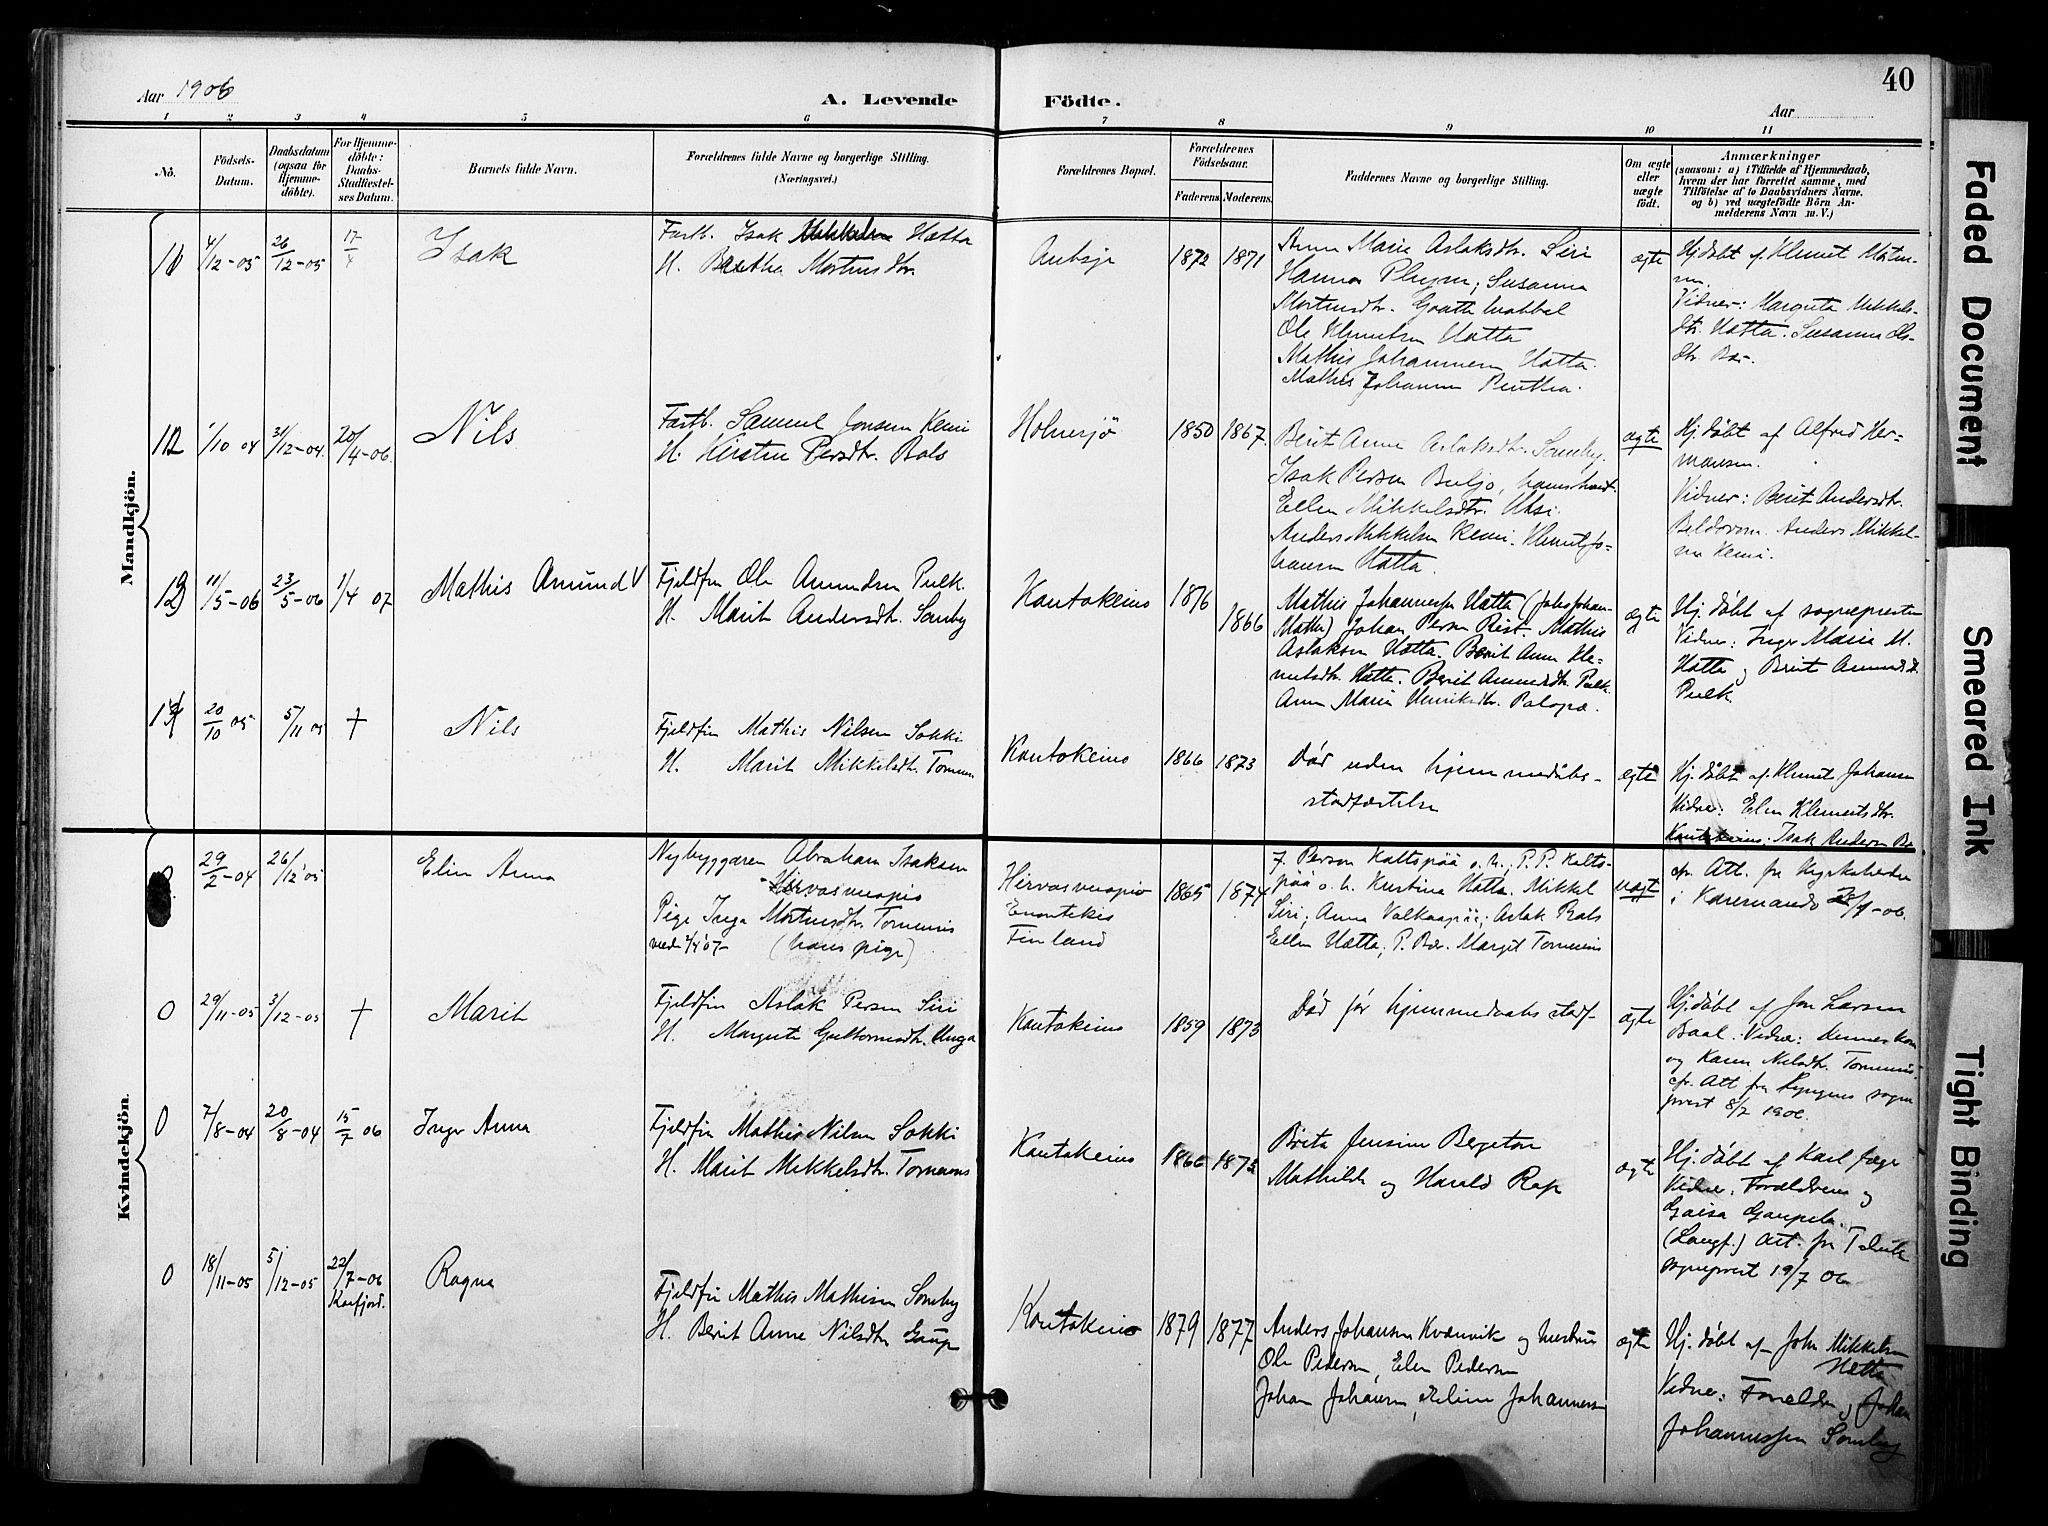 Aar 1906
A. Levende Födte.
Aar
40
1 2 3 4 5 6 7 8 9 10 11
No.
Födsels-Datum.
Daabsdatum (ogsaa for Hjemme-döbte).
For Hjemme-döbte: Daabs-Stadfæstel-ses Datum.
Barnets fulde Navn.
Forældrenes fulde Navne og borgerlige Stilling.
(Næringsvei.)
Forældrenes Bopæl.
Forældrenes Födselsaar.
Faderens. Moderens.
Faddernes Navne og borgerlige Stilling.
Om ægte eller uægte födt.
Anmærkninger
(saasom: a) i Tilfælde af Hjemmedaab,
hvem der har forrettet samme, med
Tilföielse af to Daabsvidners Navne.
og b) ved uægtefödte Börn An-
melderens Navn m. V.)
Mandkjön.
11 4/12-05 26/12-05 17/4 Isak
Fastb. Isak Mikkelsen Hætta
H. Beretha Mortensdtr.
1872 1871
Anne Marie Aslaksdtr. Siri
Hanna Plym; Susanna
Mortensdtr.
Ole Klemetsen Hætta
Mathis Johannesen Hætta.
Mathis Johannesen
ægte
Hj. døbt af Klemet Morten-
sen.
Vidner: Margreta Mikkels-
dtr. Hætta. Susanna Ols-
dtr. Bær.
12 1/10 04 31/12-04. 20/4-06. Nils
Fastb. Samuel Jonsen Kemi
H. Kirsten Persdtr. Bals
1850 1867.
Berit Anne Aslaksdtr. Somby.
Isak Persen Buljo,
Ellen Mikkelsdtr. Utsi.
Anders Mikkelsen Kemi. Klemet Jo-
hansen Hætta.
ægte
Hj. døbt af Alfred Her-
mansen.
Vidner: Berit Andersdtr.
Anders Mikkel-
sen Kemi.
13 11/5-06 23/5-06 1/4 07 Mathis Amund
Fjeldfin Ole Amundsen Pulk.
H. Marit Andersdtr. Somby
Kautokeino 1876 1866
Mathis Johannessen Hætta
Johan Persen Rist. Mathis
Aslaksen Hætta. Berit Anne Kle-
metsdtr. Hætta. Berit Amundsdtr. Pulk.
Anne Maria Henriksdtr. Palopæ.
ægte
Hj. døbt af sognepresten
Vidner: Inger Maria M.
Hætta og Berit Amundsd.
Pulk.
14 20/10 05 5/11 05 † Nils
Fjeldfin Mathis Nilsen Sokki
H. Marit Mikkelsdtr.
Kautokeino 1866 1873
Død uden hjemmedåbs-
stadfæstelse
ægte
Hj. døbt af Klemet Johansen
Vidner: Elen Klemetsdtr.
Kautokeino. Isak Andersen
Kvindekjön.
29/2-04 26/12 05 Elin Anna
Nybyggaren Abraham Isaksen
Hirvasvuopio
Pige Inga Mortensdtr. Tornensis
(hans pige)
Hirvasvuopio
Enontekis
Finland
1865 1874
Siri; Anna Valkeapää; Aslak Bals
Ellen Hætta; P. Bær. Margit Tornensis
uægt
cfr. Att. fra Kyrkoherden
i Karesuando
0 29/11-05 3/12-05 † Marit
Fjeldfin Aslak Persen Siri
H. Margrete Guttormsdtr. Unga
Kautokeino 1859 1873
Død før hjemmedaabs stadf-
ægte
Hj. døbt af Jon Larsen
Baal. Vidner: Dennes kone
og Karen Nilsdtr. Tornensis.
cfr. Att fra Lyngens sogne
prest 8/2 1906.
0 7/8-04 20/8-04 15/7 06 Inger Anna
Fjeldfin Mathis Nilsen Sokki
H. Marit Mikkelsdtr. Tornensis
Kautokeino 1866 1873
Brita Jensine Bergeton
Mathilde og Harald Rap
ægte
Hj. døbt af Karl
Vidner: Forældrene og
Gaisa Gaupela.
(Langf.) Att. fra Talvik
sogneprest 19/7 06
0 18/11-05 5/12-05 22/7-06 Kaafjord. Ragna
Fjeldfin Mathis Mathisen Somby
H. Berit Anne Nilsdtr Gaup
Kautokeino 1879 1877
Anders Johansen Kvænvik og hustru
Ole Pedersen, Elen Pedersen
Johan Johansen, Johannesen
ægte
Hj. døbt af John Mikkelsen
Hætta
Vidner: Forældre, Johan
Johannessen Somby
Faded Document
Smeared Ink
Tight Binding